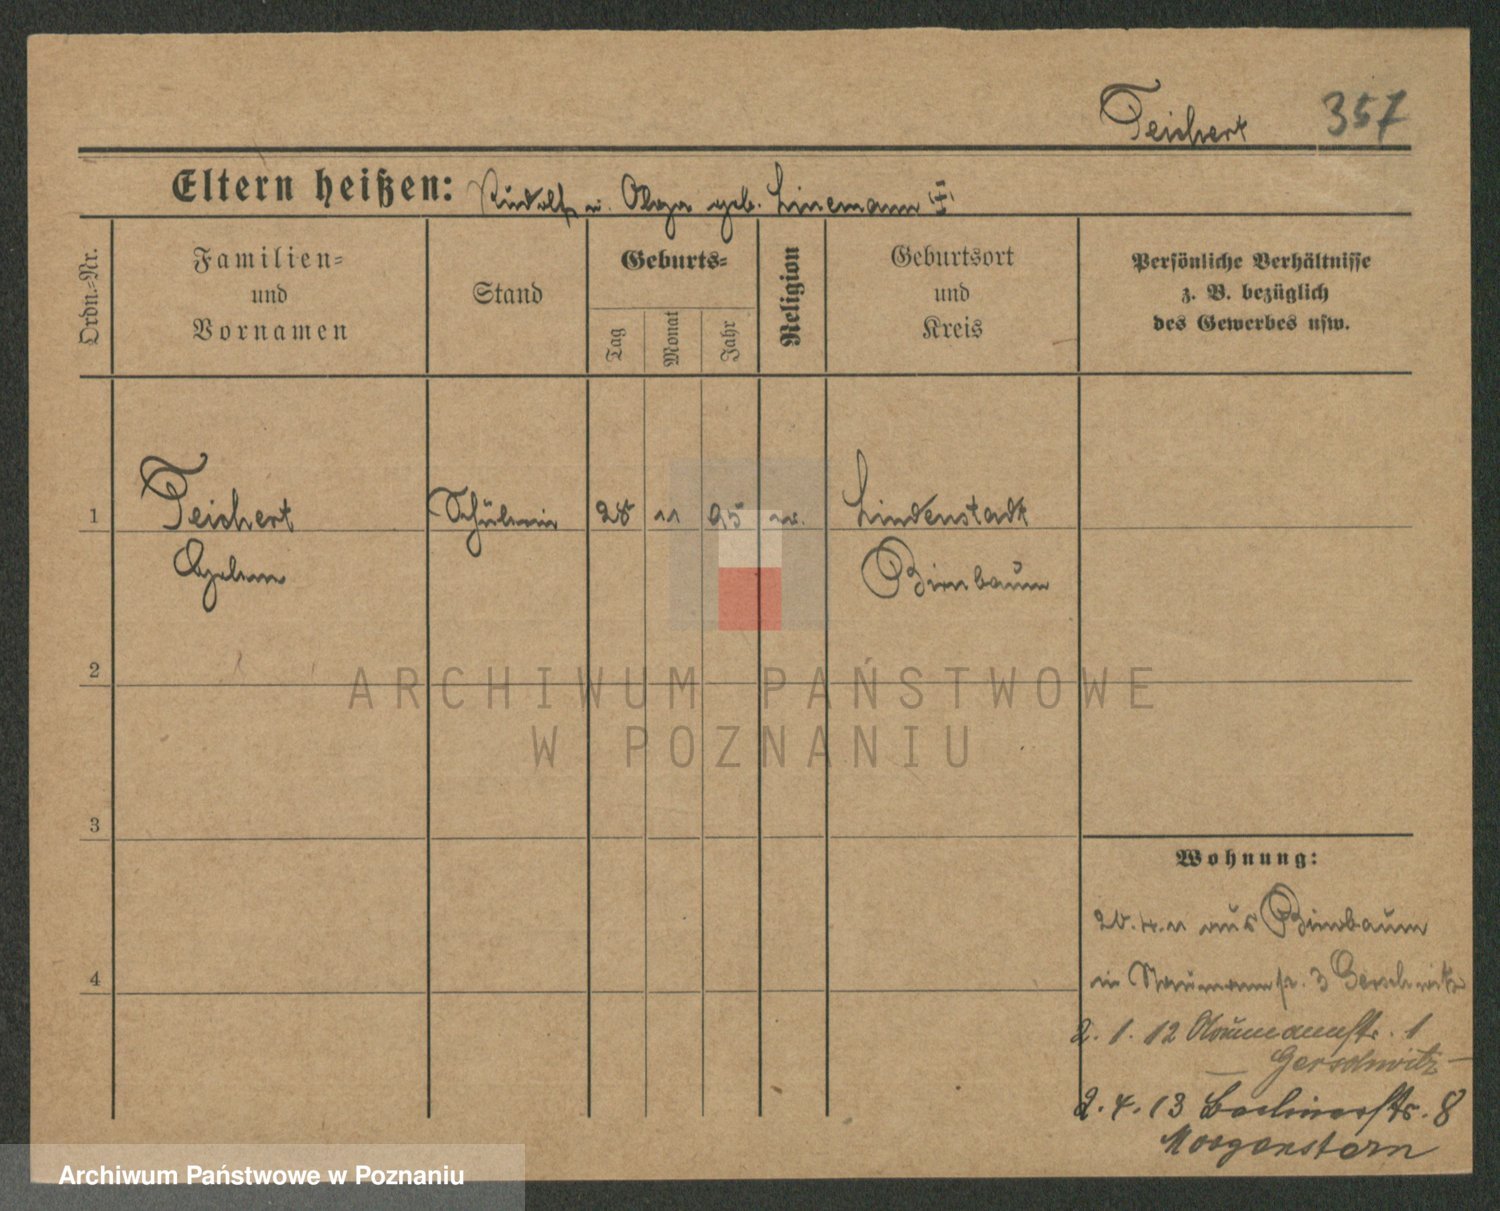 Teichert 357
Eltern heißen: Rudolf u. Olga geb. Linemann
Ordn.-Nr.
Familien=
und
Vornamen
Stand
Geburts=
Tag
Monat
Jahr
Religion
Geburtsort
und
Kreis
Persönliche Verhältnisse
z. B. bezüglich
des Gewerbes usw.
1 Teichert Schülerin 28 11 95 Lindenstadt
Birnbaum
2
ARCHIWUM PAŃSTWOWE
W POZNANIU
3
Wohnung:
20.4.11 aus Birnbaum
in Naumannstr. 3 Gerschwitz
4
2.1.12 Naumannstr. 1
Gerschwitz
2.4.13 Berlinerstr. 8
Morgenstern
Archiwum Państwowe w Poznaniu